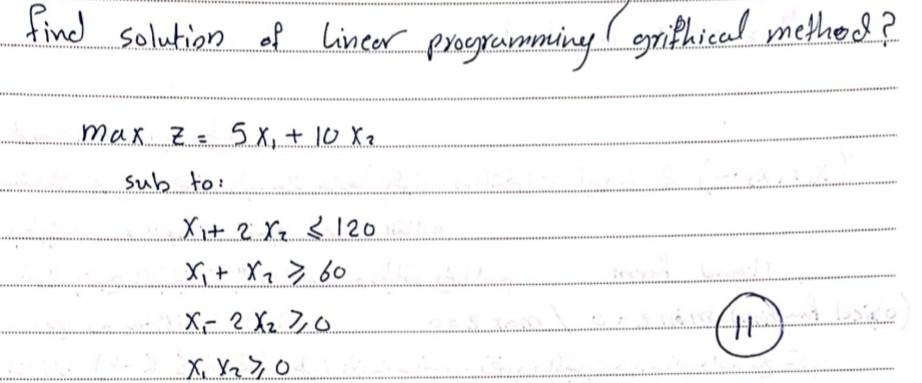 find solution of lineer programming ( grifhical method ?
max z = 5 X₁ + 10 X₂
sub to:
X₁ + 2 X₂ ≤ 120
X₁ + X₂ ≥ 60
X₁ - 2 X₂ ≥ 0
X₁ X₂ ≥ 0
11